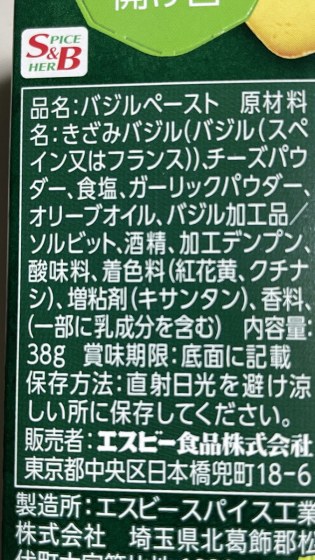 開け口
SPICE
S&B
HERB
品名:バジルペースト　原材料
名:きざみバジル(バジル(スペ
イン又はフランス))、チーズパウ
ダー、食塩、ガーリックパウダー、
オリーブオイル、バジル加工品/
ソルビット、酒精、加工デンプン、
酸味料、着色料(紅花黄、クチナ
シ)、増粘剤(キサンタン)、香料、
(一部に乳成分を含む)　内容量:
38g　賞味期限:底面に記載
保存方法:直射日光を避け涼
しい所に保存してください。
販売者:エスビー食品株式会社
東京都中央区日本橋兜町18-6
製造所:エスビースパイス工業
株式会社　埼玉県北葛飾郡松